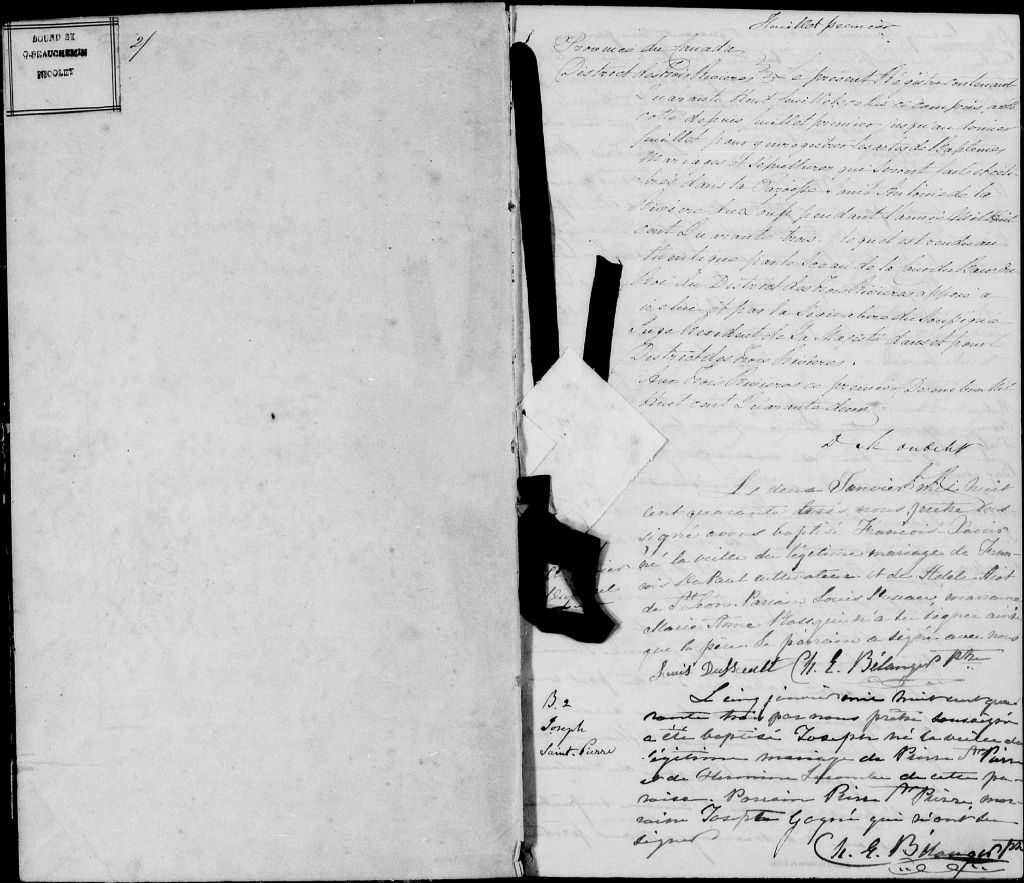 BOUND BY
O. BEAUCHEMIN
NICOLET
2/
Feuillet premier
Province du Canada
District des Trois Rivieres Le présent Régistre contenant
Quarante Huit feuillets celui ci compris, a été
cotté depuis feuillet premier jusqu'au dernier
feuillet pour y enregistrer les actes de Baptemes
Mariages et Sépultures qui seront fait et célé-
brés dans la Paroisse Saint Antoine de la
Riviere du Loup pendant l'année Mil Huit
cent Quarante trois, lequel est rendu au
thentique par le Sceau de la Cour du Banc du
Roi du District des Trois Rivieres apposé a
icelui et par la Signature du Soussigné
Juge Resident de Sa Majesté dans et pour le
District des Trois Rivieres.
Aux Trois Rivieres ce premier Décembre Mil
Huit cent Quarante deux.
Le deux Janvier mil huit
cent quarante trois, nous prêtre sous-
signé avons baptisé François-Xavier
né la veille du légitime mariage de Fran-
çois DuPaul cultivateur et de Adele
de St Léon. Parrain Louis marraine
Marie Anne qui n'a su signer ainsi
que le père. Le parrain a signé avec nous
Louis Dussault Ch. E. Bélanger Ptre
B. 2
Joseph
Saint-Pierre
Le cinq janvier mil huit cent qua-
rante trois par nous prêtre soussigné
a été baptisé Joseph né la veille du
légitime mariage de Pierre St Pierre
et de Hermine de cette pa-
roisse. Parrain Pierre St Pierre, mar-
raine Josepte Gagné qui n'ont su
signer
Ch. E. Bélanger Ptre